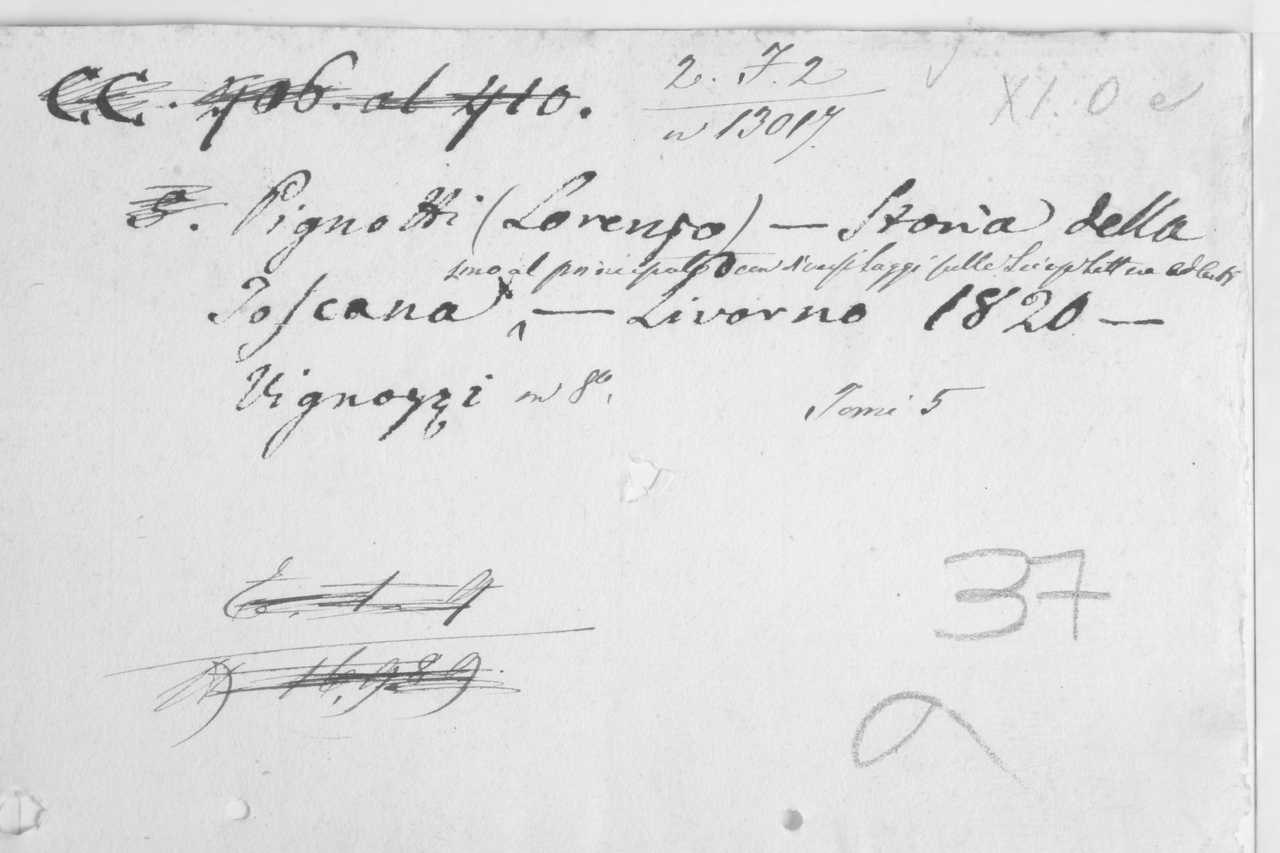 CC. 406. al 410.
2. F. 2
n 13017
XI. O e
5. Pignotti (Lorenzo) — Storia della
sino al principato con diversi saggi sulle Scienze Lettere ed Arti
Toscana — Livorno 1820 —
Vignozzi in 8º.
Tomi 5
E. 1. 9
N 16,989
37
a